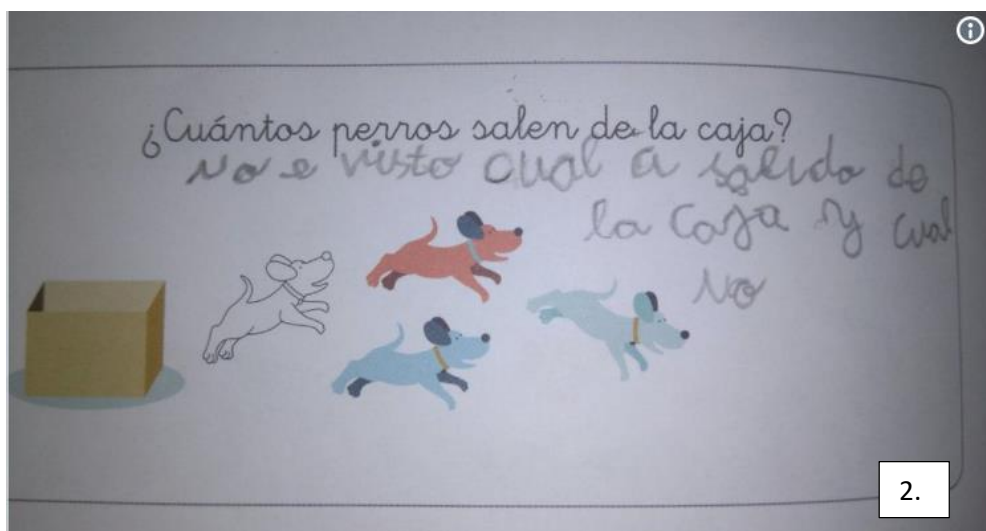 ¿Cuántos perros salen de la caja?
No e visto cual a salido de
la caja y cual
No
2.